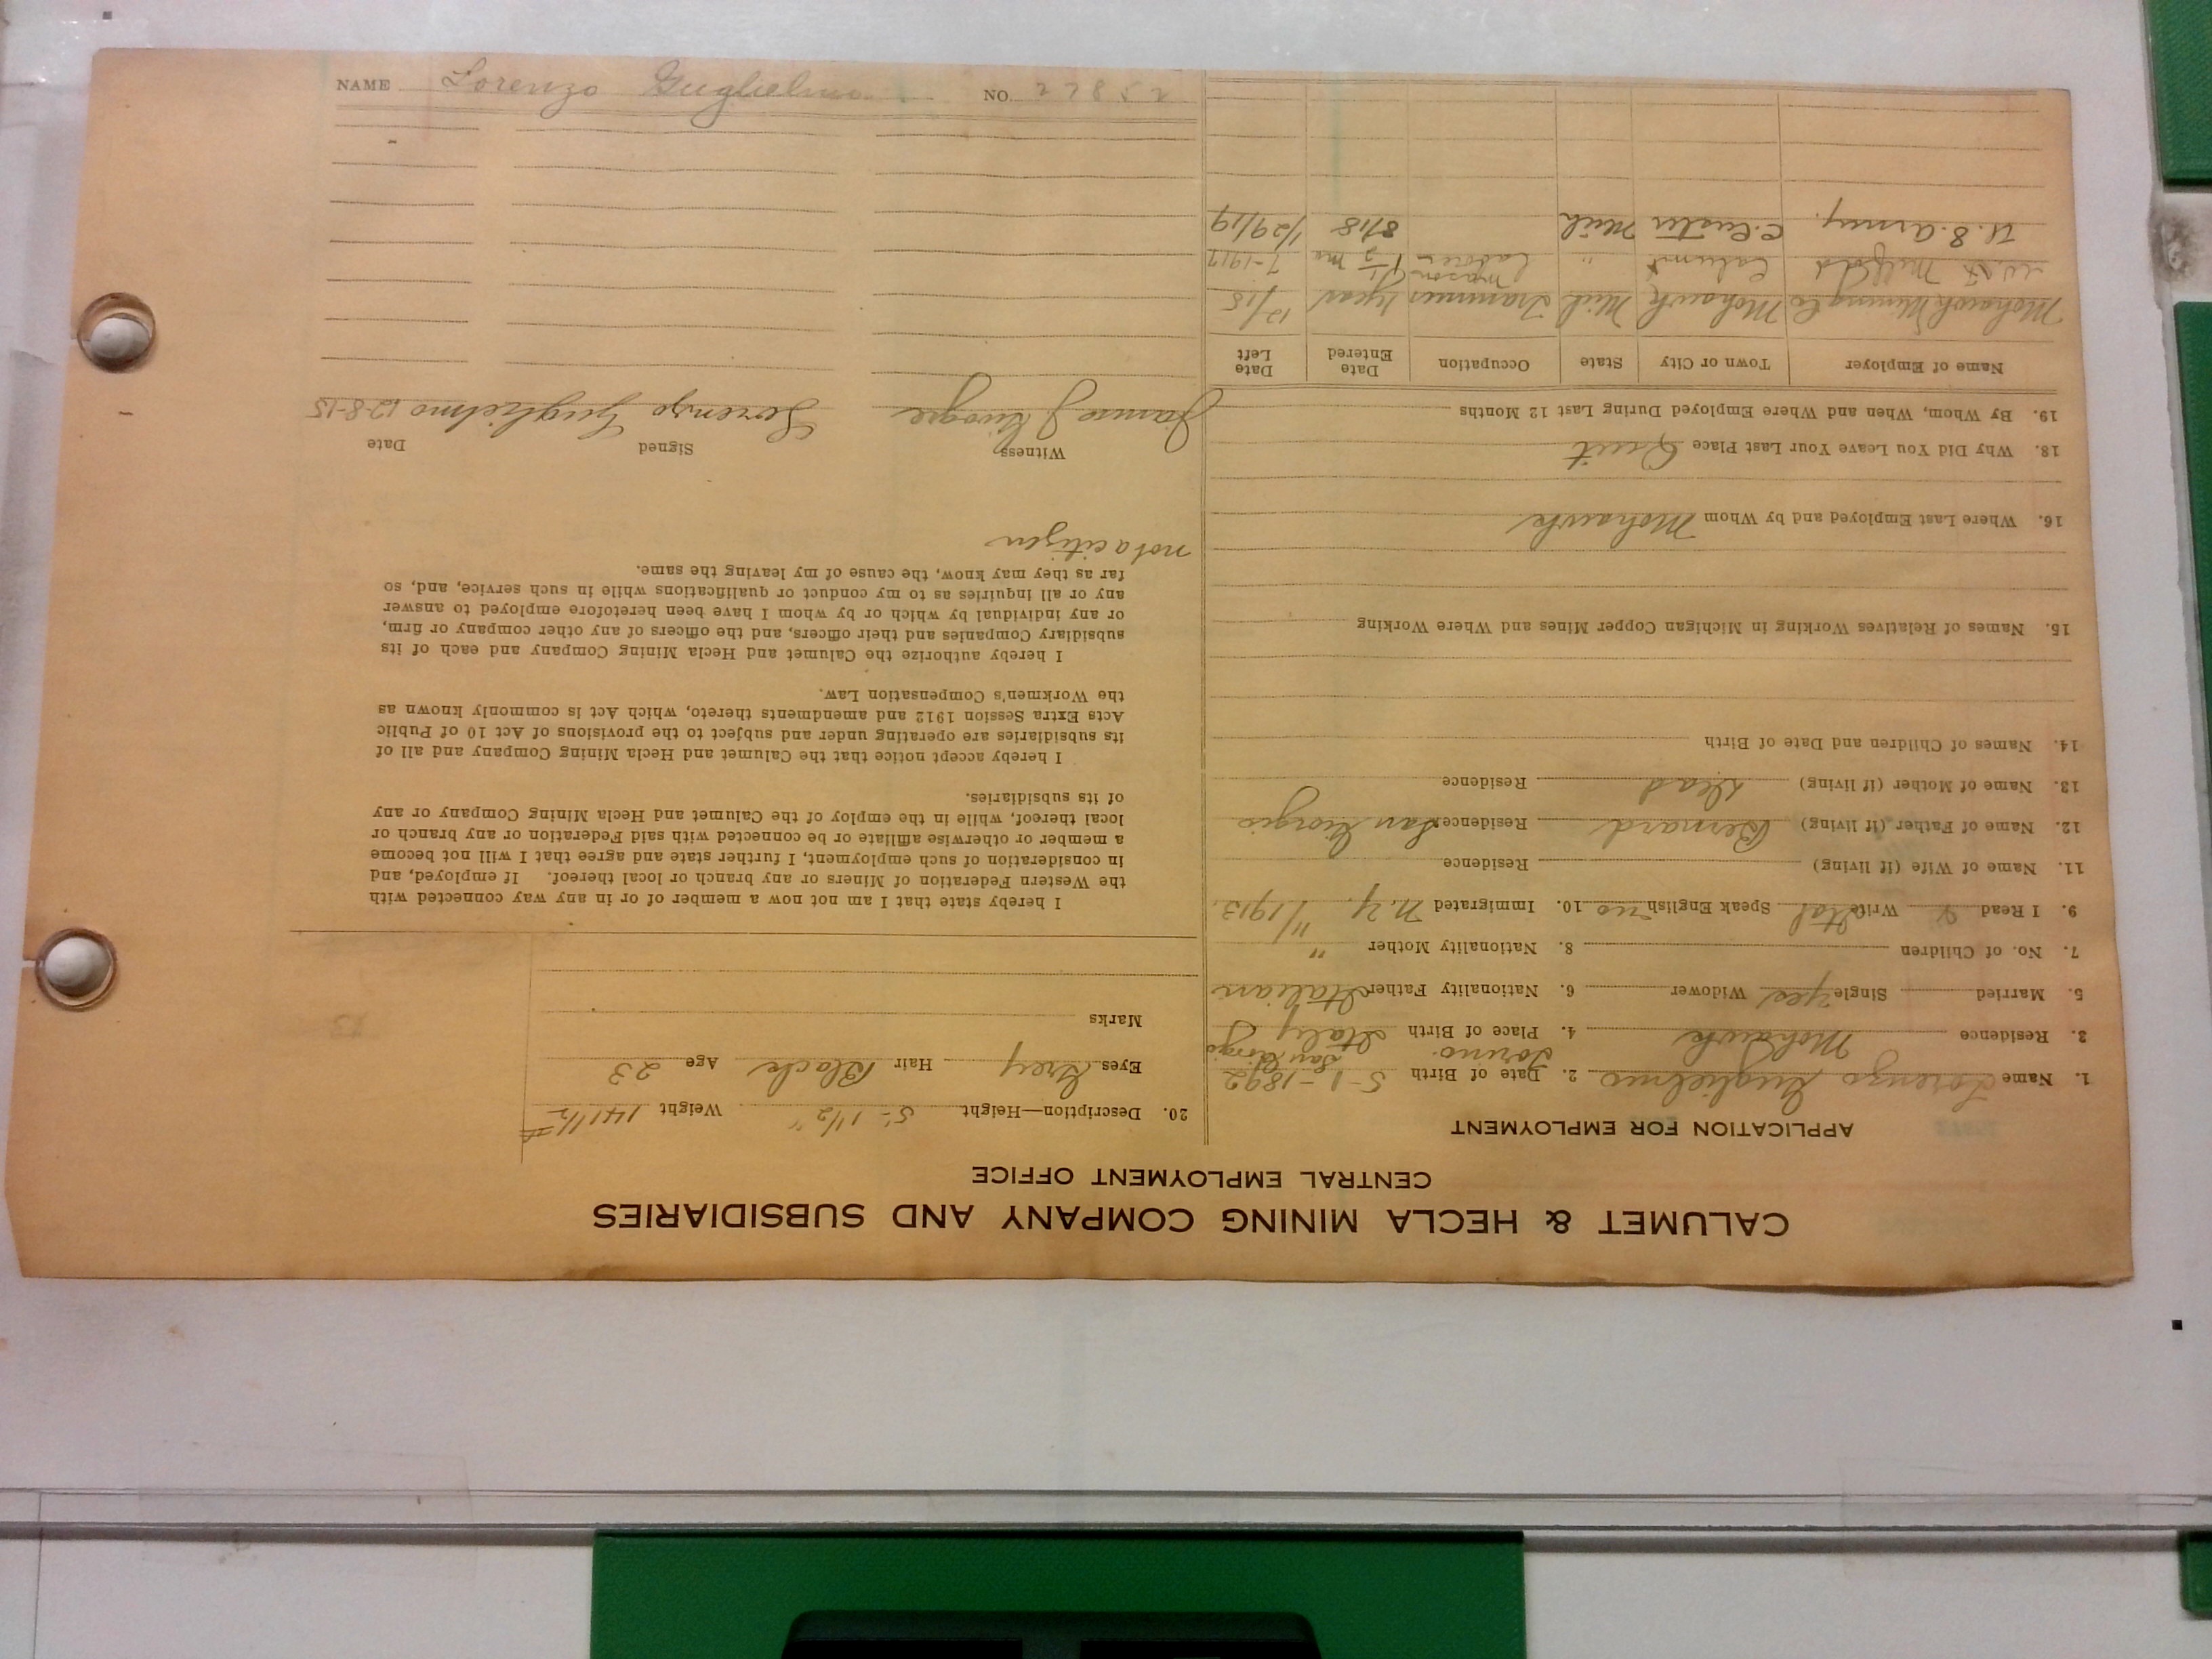 CALUMET & HECLA MINING COMPANY AND SUBSIDIARIES
CENTRAL EMPLOYMENT OFFICE
APPLICATION FOR EMPLOYMENT
1. Name Lorenzo Guglielmo 2. Date of Birth 5-1-1892
Torino San Giorgio
3. Residence Mohawk 4. Place of Birth Italy
5. Married Single yes Widower 6. Nationality Father Italian
7. No. of Children 8. Nationality Mother "
9. I Read & Write Ital Speak English no 10. Immigrated N.Y. 11/1913.
11. Name of Wife (if living) Residence
12. Name of Father (if living) Bernard Residence San Giorgio
13. Name of Mother (if living) Dead Residence
14. Names of Children and Date of Birth
15. Names of Relatives Working in Michigan Copper Mines and Where Working
16. Where Last Employed and by Whom Mohawk
18. Why Did You Leave Your Last Place Quit
19. By Whom, When and Where Employed During Last 12 Months
Name of Employer Town or City State Occupation Date Entered Date Left
Mohawk Mining Co Mohawk Mich Trammer 1 year 12/15
Calumet " mason laborer 1 1/2 mo 7-1917
U.S. Army. C. Custer Mich 8/18 1/29/19
20. Description—Height 5'-1 1/2" Weight 141 1/2 #
Eyes Grey Hair Black Age 23
Marks
I hereby state that I am not now a member of or in any way connected with
the Western Federation of Miners or any branch or local thereof. If employed, and
in consideration of such employment, I further state and agree that I will not become
a member or otherwise affiliate or be connected with said Federation or any branch or
local thereof, while in the employ of the Calumet and Hecla Mining Company or any
of its subsidiaries.
I hereby accept notice that the Calumet and Hecla Mining Company and all of
its subsidiaries are operating under and subject to the provisions of Act 10 of Public
Acts Extra Session 1912 and amendments thereto, which Act is commonly known as
the Workmen's Compensation Law.
I hereby authorize the Calumet and Hecla Mining Company and each of its
subsidiary Companies and their officers, and the officers of any other company or firm,
or any individual by which or by whom I have been heretofore employed to answer
any or all inquiries as to my conduct or qualifications while in such service, and, so
far as they may know, the cause of my leaving the same.
not a citizen
Witness Signed Date
James J. Lorenzo Guglielmo 12-8-15
NAME Lorenzo Guglielmo NO. 27852